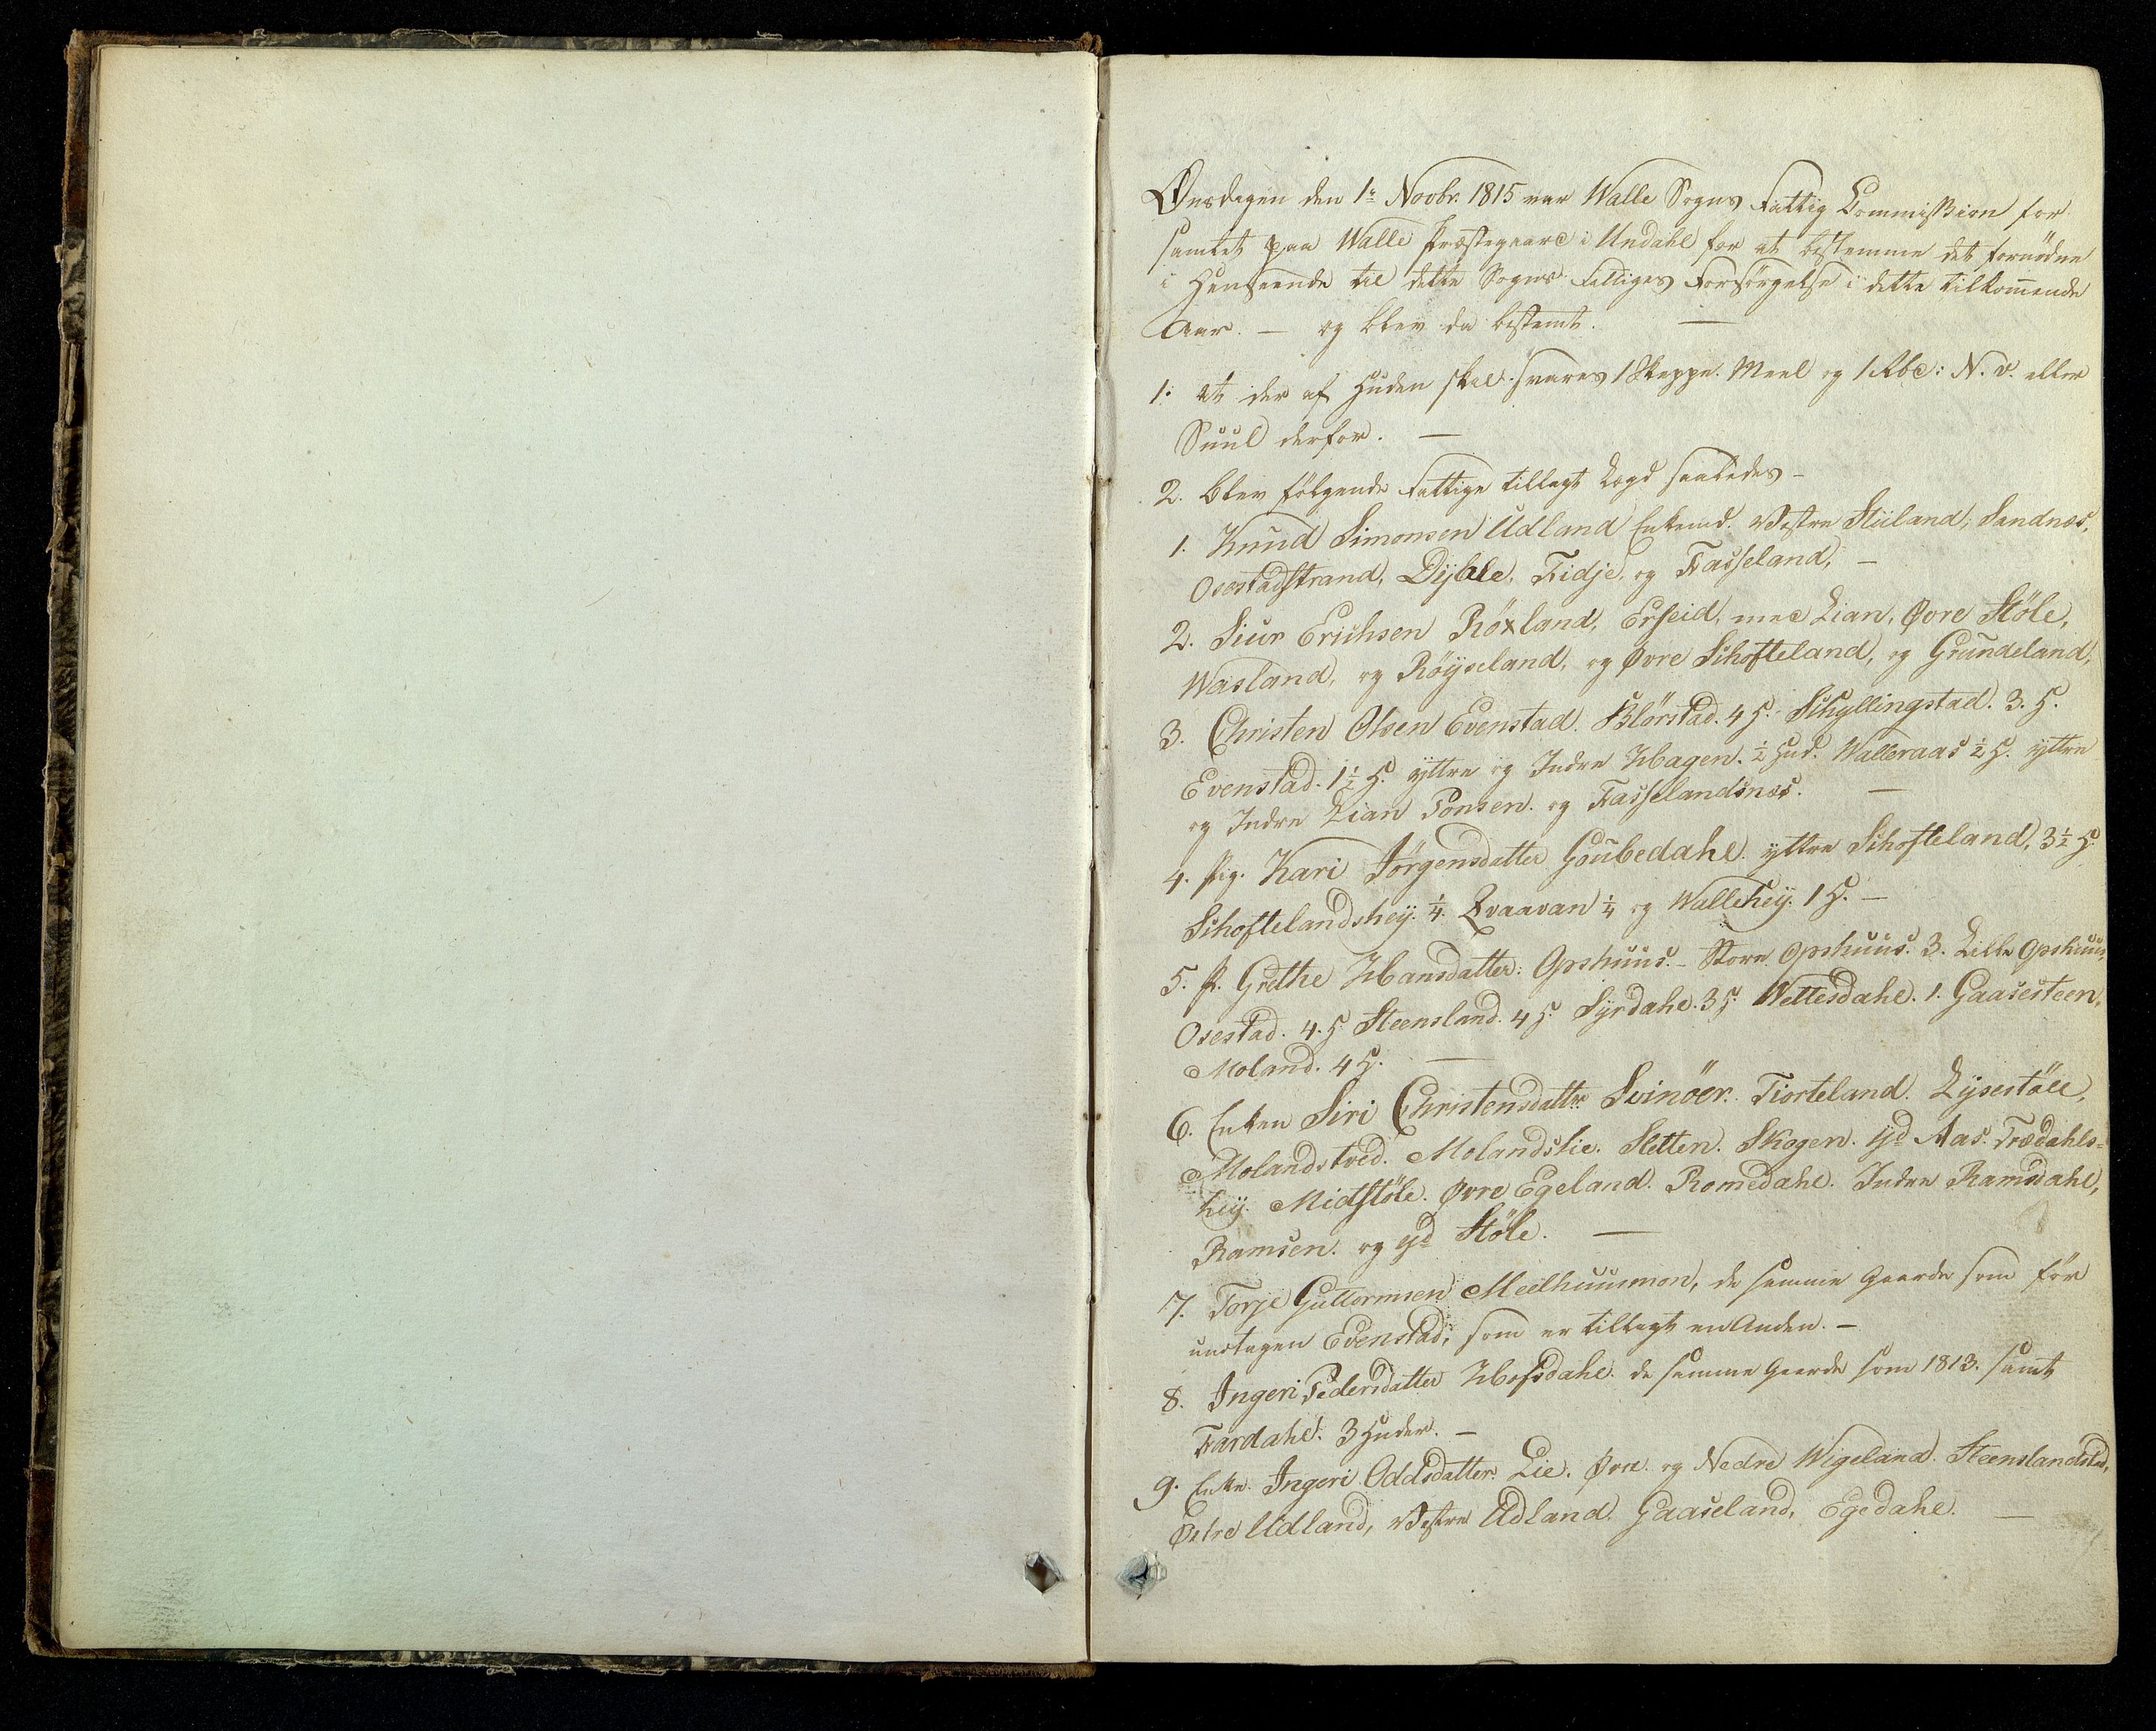 Onsdagen den 1ᵗᵉ Novbr. 1815 var Walle Sogns Fattig Commission for
samlet paa Walle Præstegaard i Undahl for at bestemme det fornödne
i Henseende til dette Sogns Fattiges Forsörgelse i dette tilkommende
Aar. — og blev da bestemt. —
1. at der af Huden skal svares 1 Skeppe Meel og 1 Rbd: N. V. eller
Suul derfor. —
2. Blev fölgende Fattige tillagt Lægd saaledes -
1. Knud Simonsen Udland Enkemd. Vestre Stuland, Sandnæs,
Osestadstrand, Dyble, Tidje, og Hasseland, —
2. Siur Erichsen Röxland, Erseid, med Lian, Øvre Støle,
Wasland, og Röyseland, og Øvre Schofteland, og Grundeland,
3. Christen Olsen Evenstad. Blörstad. 4 H. Schyllingstad. 3. H.
Evenstad. 1½ H. yttre og Indre Hagen. ½ Hud. Walleraas ½ H. yttre
og Indre Lian Ponsen. og Hasselandsnæs. —
4. Pig. Kari Jörgensdatter Goubedahl. yttre Schofteland, 3½ H.
Schoftelandshey. ¼. Qvaavan ¼ og Wallehey. 1 H. —
5. P. Grethe Hansdatter: Opshuus. - Store Opshuus. 3. Lille Opshuus,
Osestad. 4. H. Steensland. 4 H. Syrdahl. 3 H. Wettesdahl. 1. Gaasesteen,
Moland. 4 H. —
6. Enken Siri Christensdattr. Svinöer. Tiorteland. Lysestöll,
Molandstved. Molandslie. Sletten. Skogen. yd Aas. Trædahls-
hey. Midtstöle. Øvre Egeland. Romedahl. Indre Ramsdahl,
Ramsen. og yd Støle. —
7. Torje Guttormsen Meelhuusmon, de samme Gaarde som för
undtagen Evenstad, som er tillagt en Anden. —
8. Ingeri Pedersdatter Hofsdahl. de samme Gaarde som 1813. samt
Fardahl. 3 Huder. —
9. Enke. Ingeri Oddsdatter Lie. Øvre og Nedre Wigeland. Steenslandstad,
Østre Udland, Vestre Udland. Gaaseland, Egedahl. —